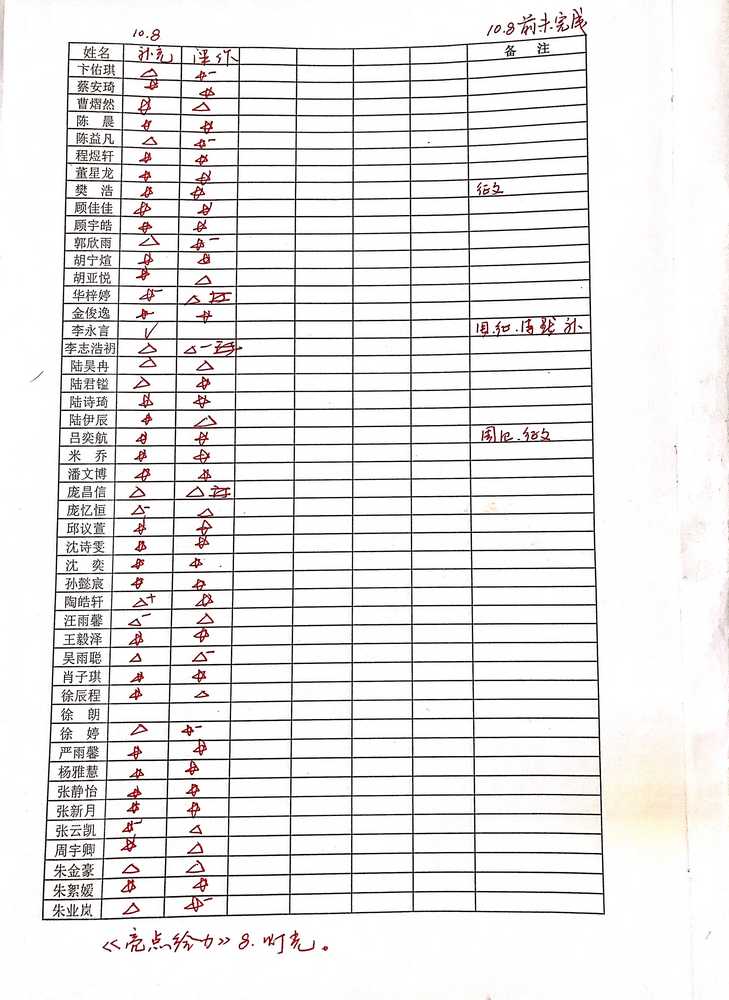 10.8 10.8前未完成
姓名 补充 课作 备注
卞佑琪 △ ☆-
蔡安琦 ☆ ☆
曹熠然 ☆ △
陈晨 ☆ ☆
陈益凡 △ ☆-
程煜轩 ☆ ☆
董星龙 ☆ ☆
樊浩 ☆ ☆ 征文
顾佳佳 ☆ ☆
顾宇皓 ☆ ☆
郭欣雨 △ ☆-
胡宁煊 ☆ ☆
胡亚悦 ☆ △
华梓婷 ☆- △
金俊逸 ☆- ☆
李永言 ✓ 补
李志浩礽 △ △-
陆昊冉 △ △
陆君镒 △ ☆
陆诗琦 ☆ ☆
陆伊辰 ☆ △
吕奕航 ☆ ☆ 周记.征文
米乔 ☆ ☆
潘文博 ☆ ☆
庞昌信 △ △
庞忆恒 △- △
邱议萱 ☆ ☆
沈诗雯 ☆ ☆
沈奕 ☆ ☆
孙懿宸 ☆ ☆
陶皓轩 △+ ☆
汪雨馨 △- △
王毅泽 ☆ ☆
吴雨聪 △ △-
肖子琪 ☆ ☆
徐辰程 ☆ △
徐朗
徐婷 △ ☆-
严雨馨 ☆ ☆
杨雅慧 ☆ ☆
张静怡 ☆ ☆
张新月 ☆ ☆
张云凯 ☆- △
周宇卿 ☆ △
朱金豪 △ △
朱絮媛 ☆ ☆
朱业岚 △ ☆-
《亮点给力》8.灯光。